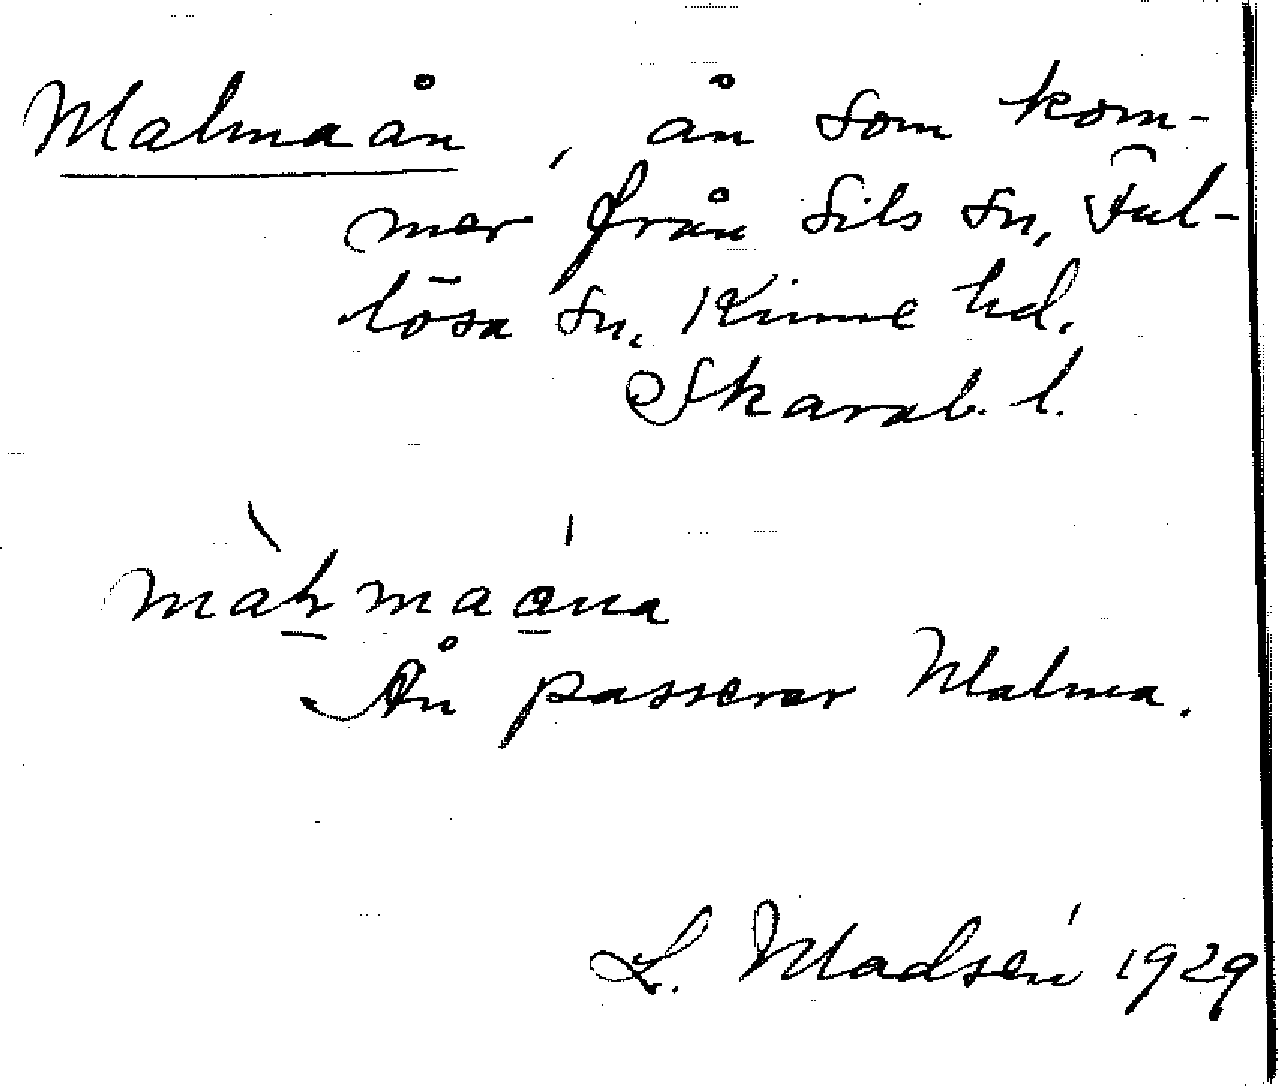 Malmaån, ån som kom-
mer från Sils sn, Ful-
lösa sn, Kinne hd.
Skarab. l.
Ån passerar Malma.
L. Madsén 1929